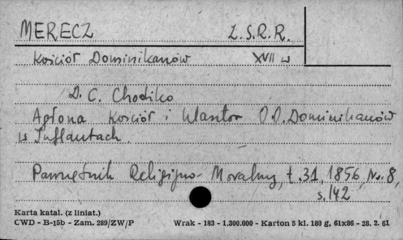 MERECZ Z.S.R.R.
Kościół Dominikanów XVII w
D. C. Chodźko
Agłona Kościół i klasztor OO. Dominikanów
w Inflantach.
Pamiętnik Religijno-Moralny, t. 31, 1856, Nr. 8,
s. 142
Karta katal. (z liniat.)
CWD - B-15b - Zam. 289/ZW/P Wrak - 183 - 1.300.000 - Karton 5 kl. 180 g, 61x86 - 28. 2. 61